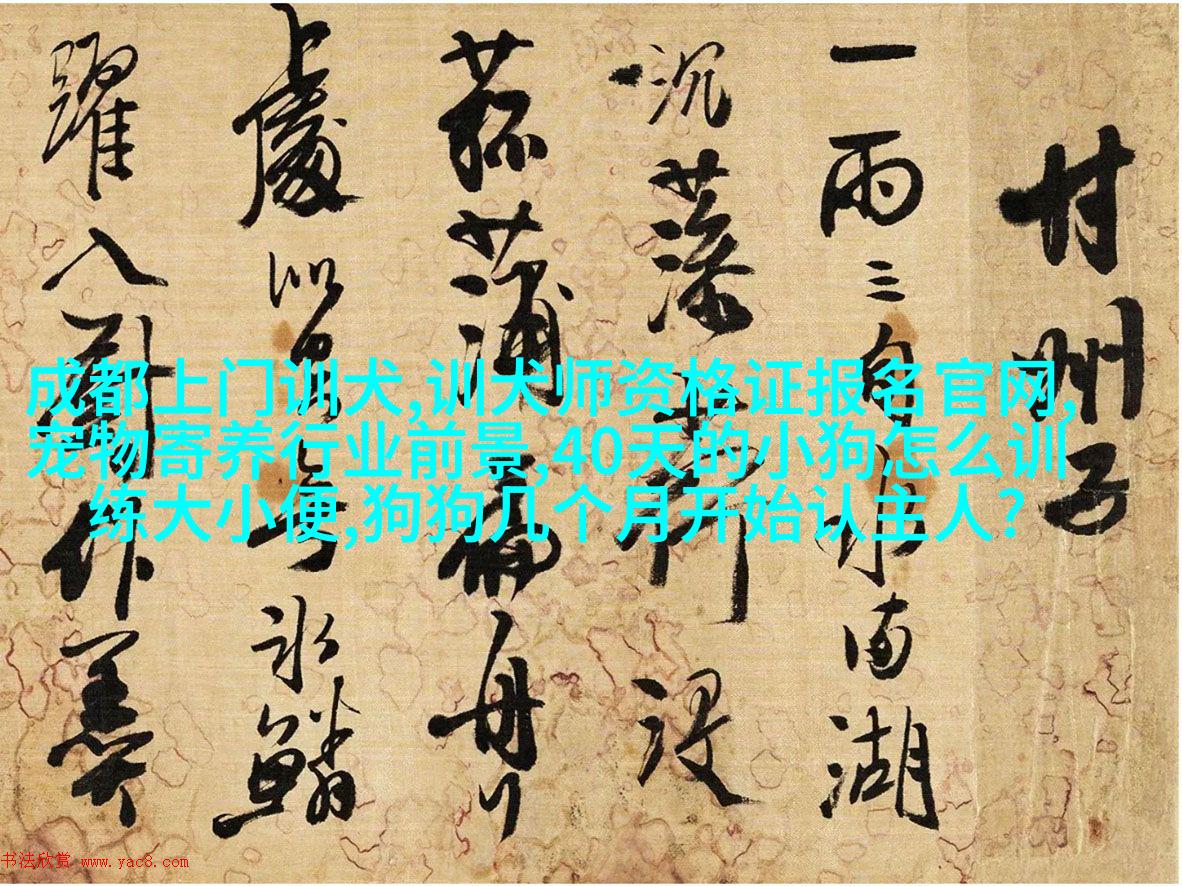 甘州子
一雨三水南湖
沉藻沒
菰蒲扁舟
上處冰鱗
躍入作羹
成都上门训犬,训犬师资格证报名官网,
宠物寄养行业前景,40天的小狗怎么训
练大小便,狗狗几个月开始认主人?
书法欣赏 www.yac8.com